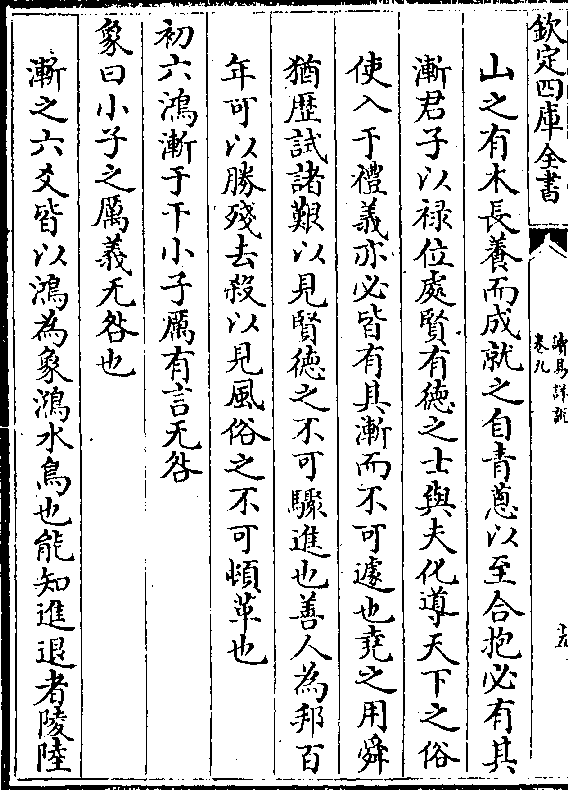 欽定四庫全書
讀易詳說
卷九
十五
山之有木長養而成就之自青蔥以至合抱必有其
漸君子以祿位處賢有德之士與夫化導天下之俗
使入于禮義亦必皆有其漸而不可遽也堯之用舜
猶歴試諸艱以見賢德之不可驟進也善人為邦百
年可以勝殘去殺以見風俗之不可頓革也
初六鴻漸于干小子厲有言无咎
象曰小子之厲義无咎也
漸之六爻皆以鴻為象鴻水鳥也能知進退者陵陸